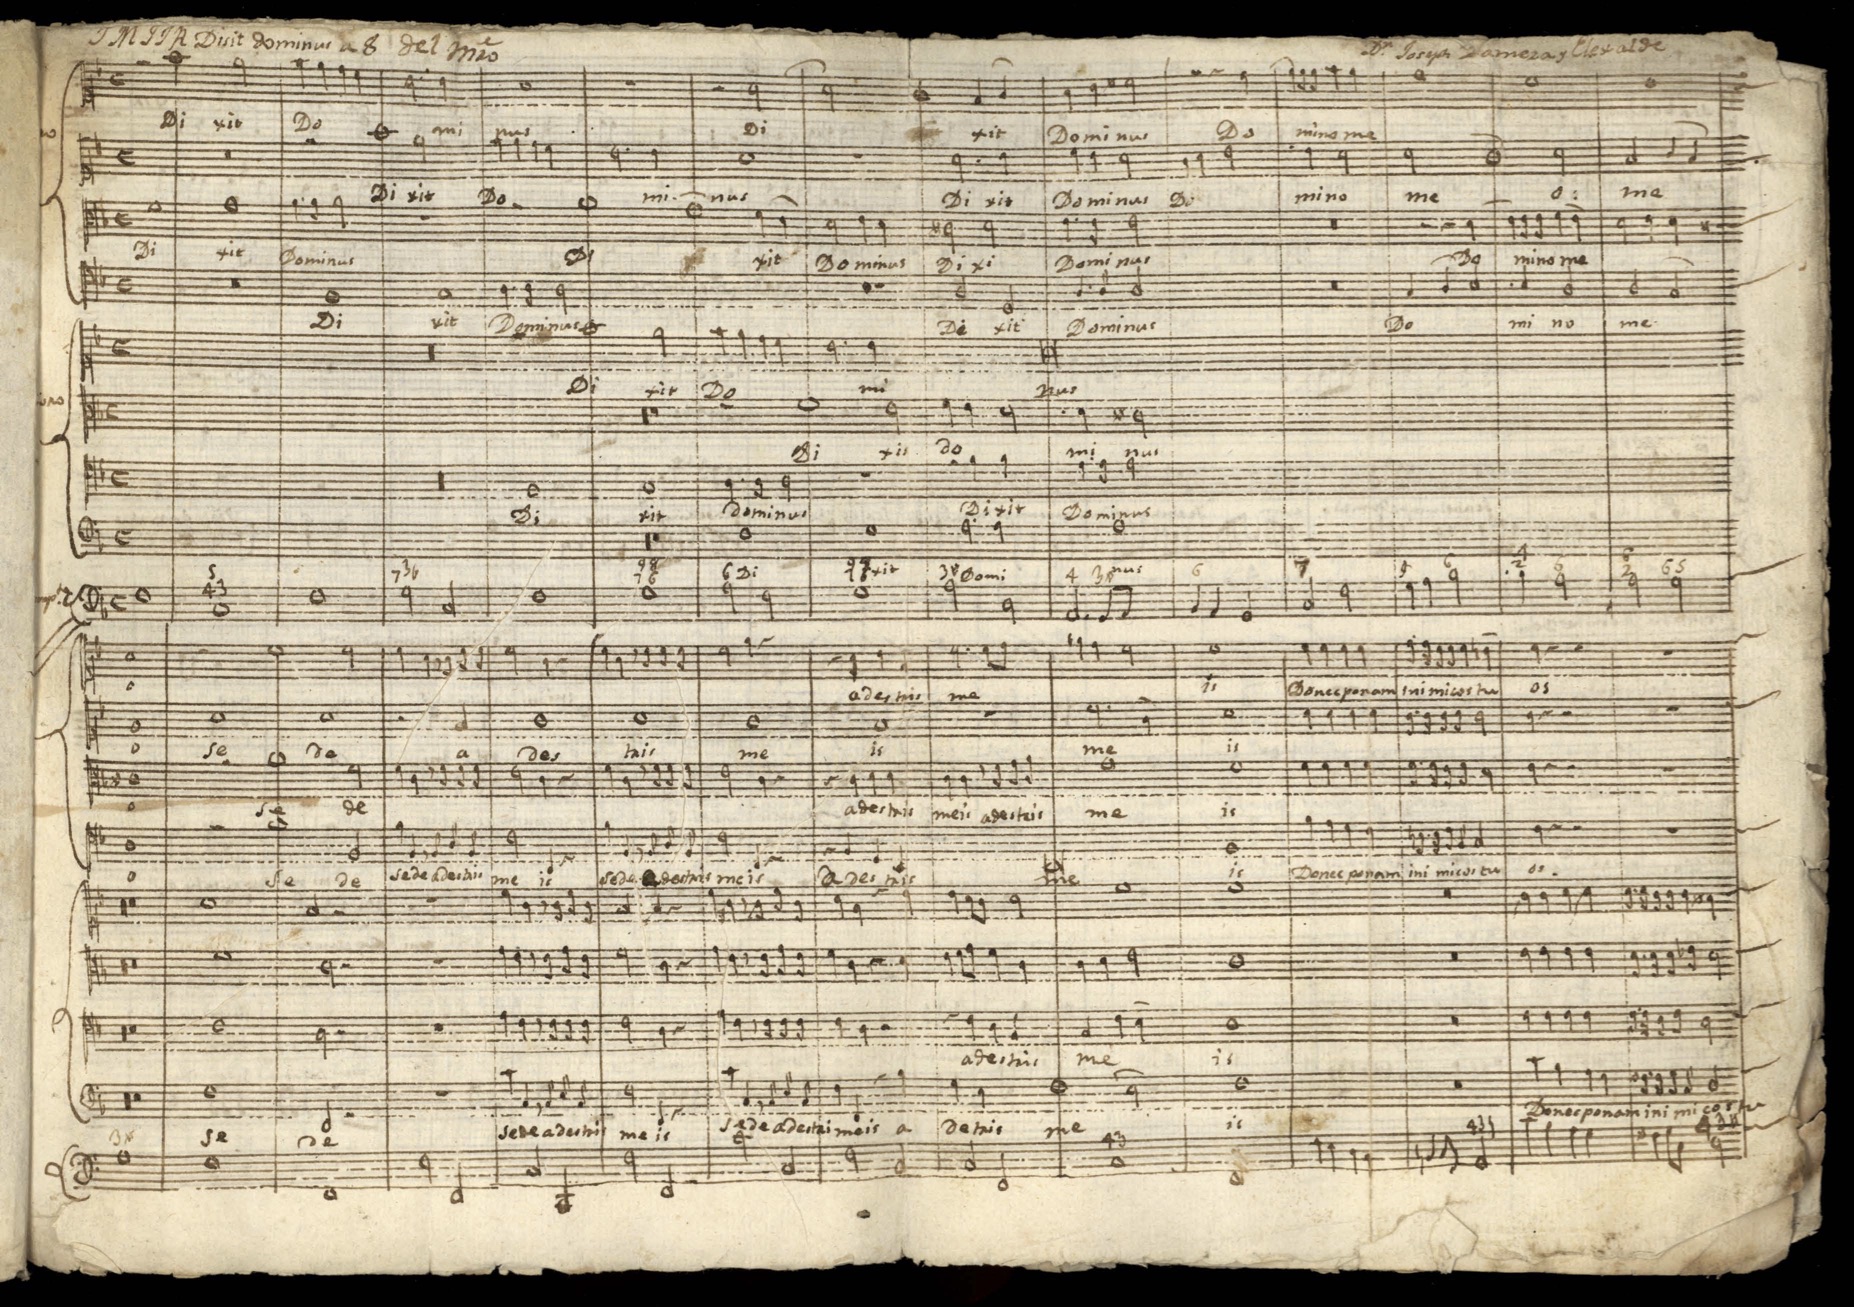 Disit dominus a 8 del Mro
Dn. Joseph
Di xit Do mi nus Di xit Dominus Do mino me
Di xit Do mi nus Di xit Dominus Do mino me o: me
Di xit Dominus Di xit Dominus Di xi Dominus Do mino me
Di xit Dominus Di xit Dominus Do mi no me
Di xit Do mi nus
Di xit do mi nus
Di xit dominus Di xit Dominus
Di xit Domi nus
5 43 7 36 98 76 6 98 76 3# 4 3# 6 7 5 6 4 2 6 6 2 65
o adestris me is Donec ponam ini micos tu os
o se de a des tris me is me is
o se de adestris meis adestris me is
o se de sede adestris me is sede adestris meis Ades tris me is Donec ponam ini micos tu os.
adestris me is
se de sede adestris me is sede adestri meis a detris me is Donec ponam ini mi cos tu
3# 43 43 43#